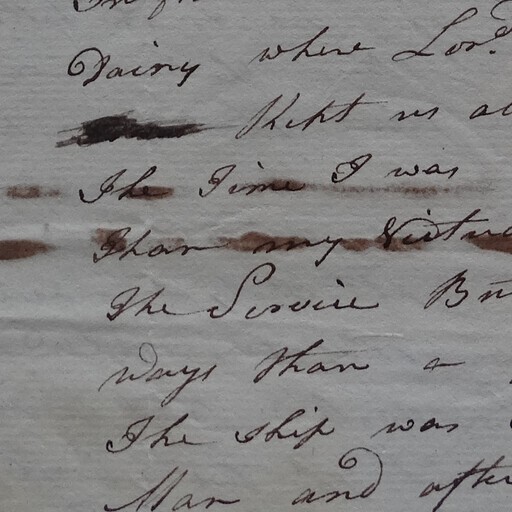 Dairy where Lord
Kept us
The Time I was
Than my Virtue
The Service
Ways than a
The ship was
Man and after